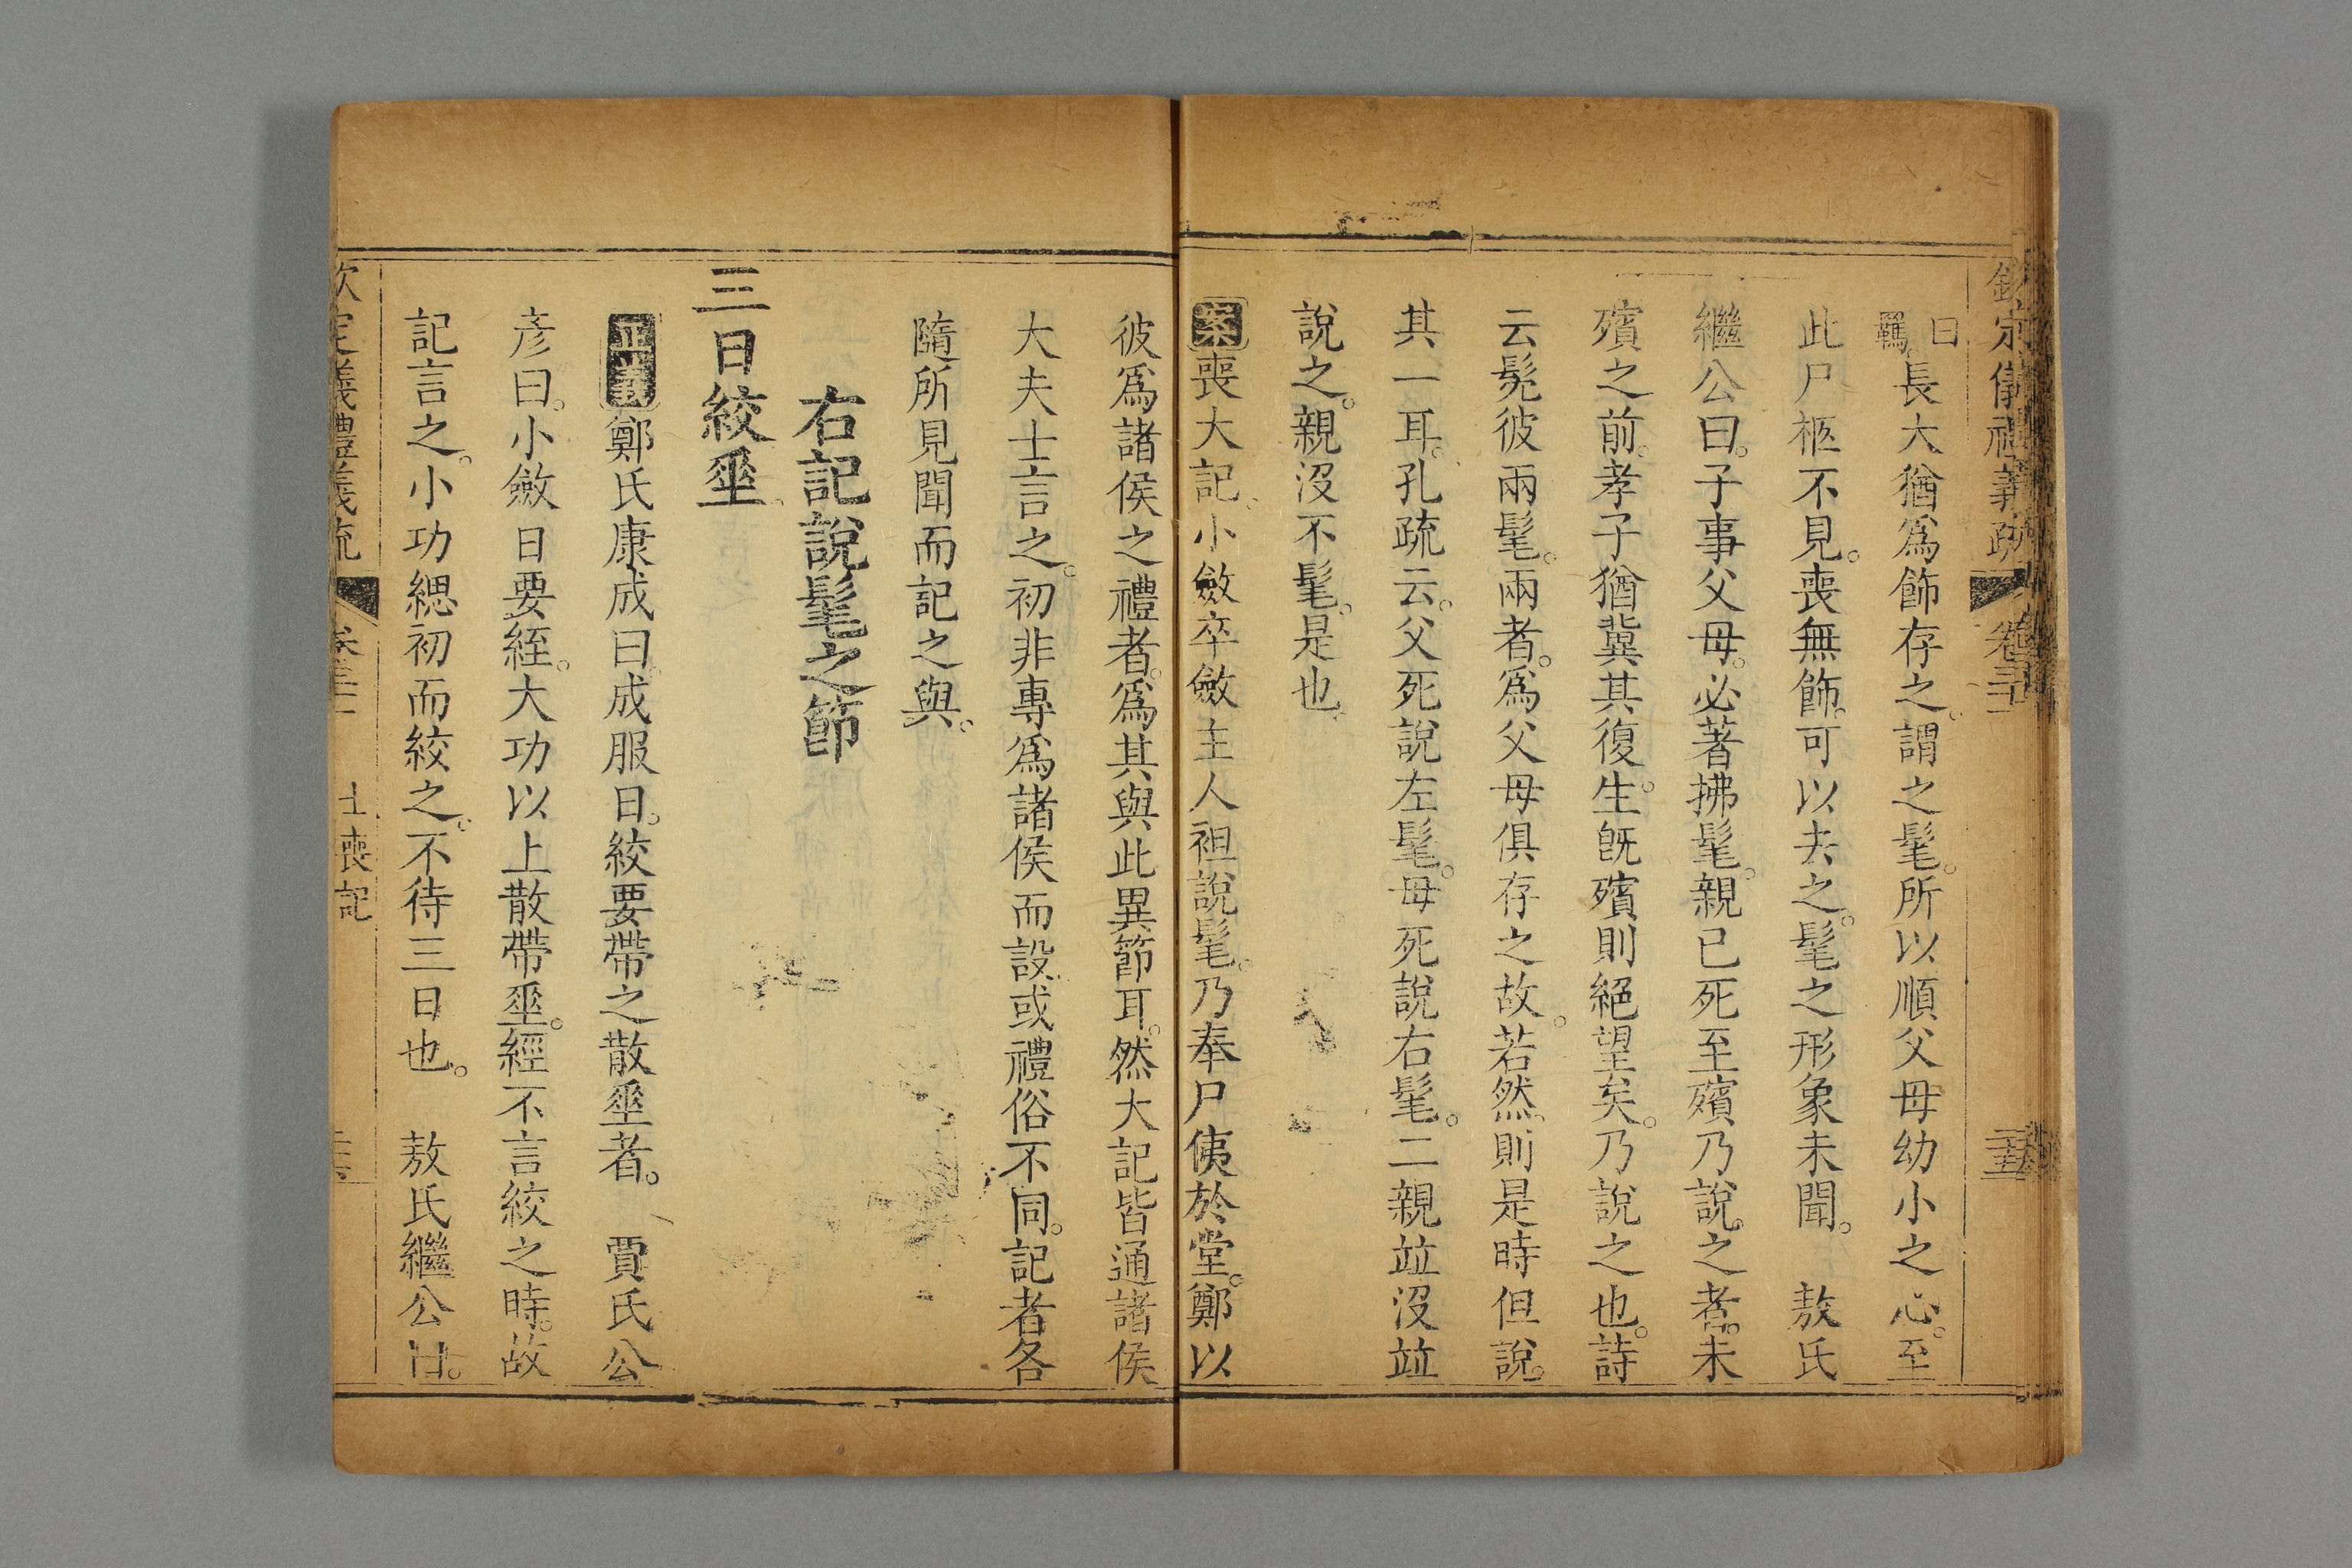 欽定儀禮義疏 卷三十一 三十五
曰羈
長大猶爲飾存之謂之髦。所以順父母幼小之心。至
此尸柩不見。喪無飾。可以去之。髦之形象未聞。 敖氏
繼公曰。子事父母。必著拂髦。親已死至殯乃說之者。未
殯之前。孝子猶冀其復生。旣殯則絕望矣。乃說之也。詩
云髧彼兩髦。兩者。爲父母俱存之故。若然。則是時但說
其一耳。孔疏云。父死說左髦。母死說右髦。二親竝沒竝
說之。親沒不髦。是也。
案喪大記。小斂卒斂主人袒說髦。乃奉尸侇於堂。鄭以
彼爲諸侯之禮者。爲其與此異節耳。然大記皆通諸侯
大夫士言之。初非專爲諸侯而設。或禮俗不同。記者各
隨所見聞而記之與。
右記說髦之節
三日絞垂
正義鄭氏康成曰。成服日。絞要帶之散垂者。 賈氏公
彥曰。小斂日要絰。大功以上散帶垂。經不言絞之時。故
記言之。小功緦初而絞之。不待三日也。 敖氏繼公曰。
欽定儀禮義疏 卷三十一 士喪記